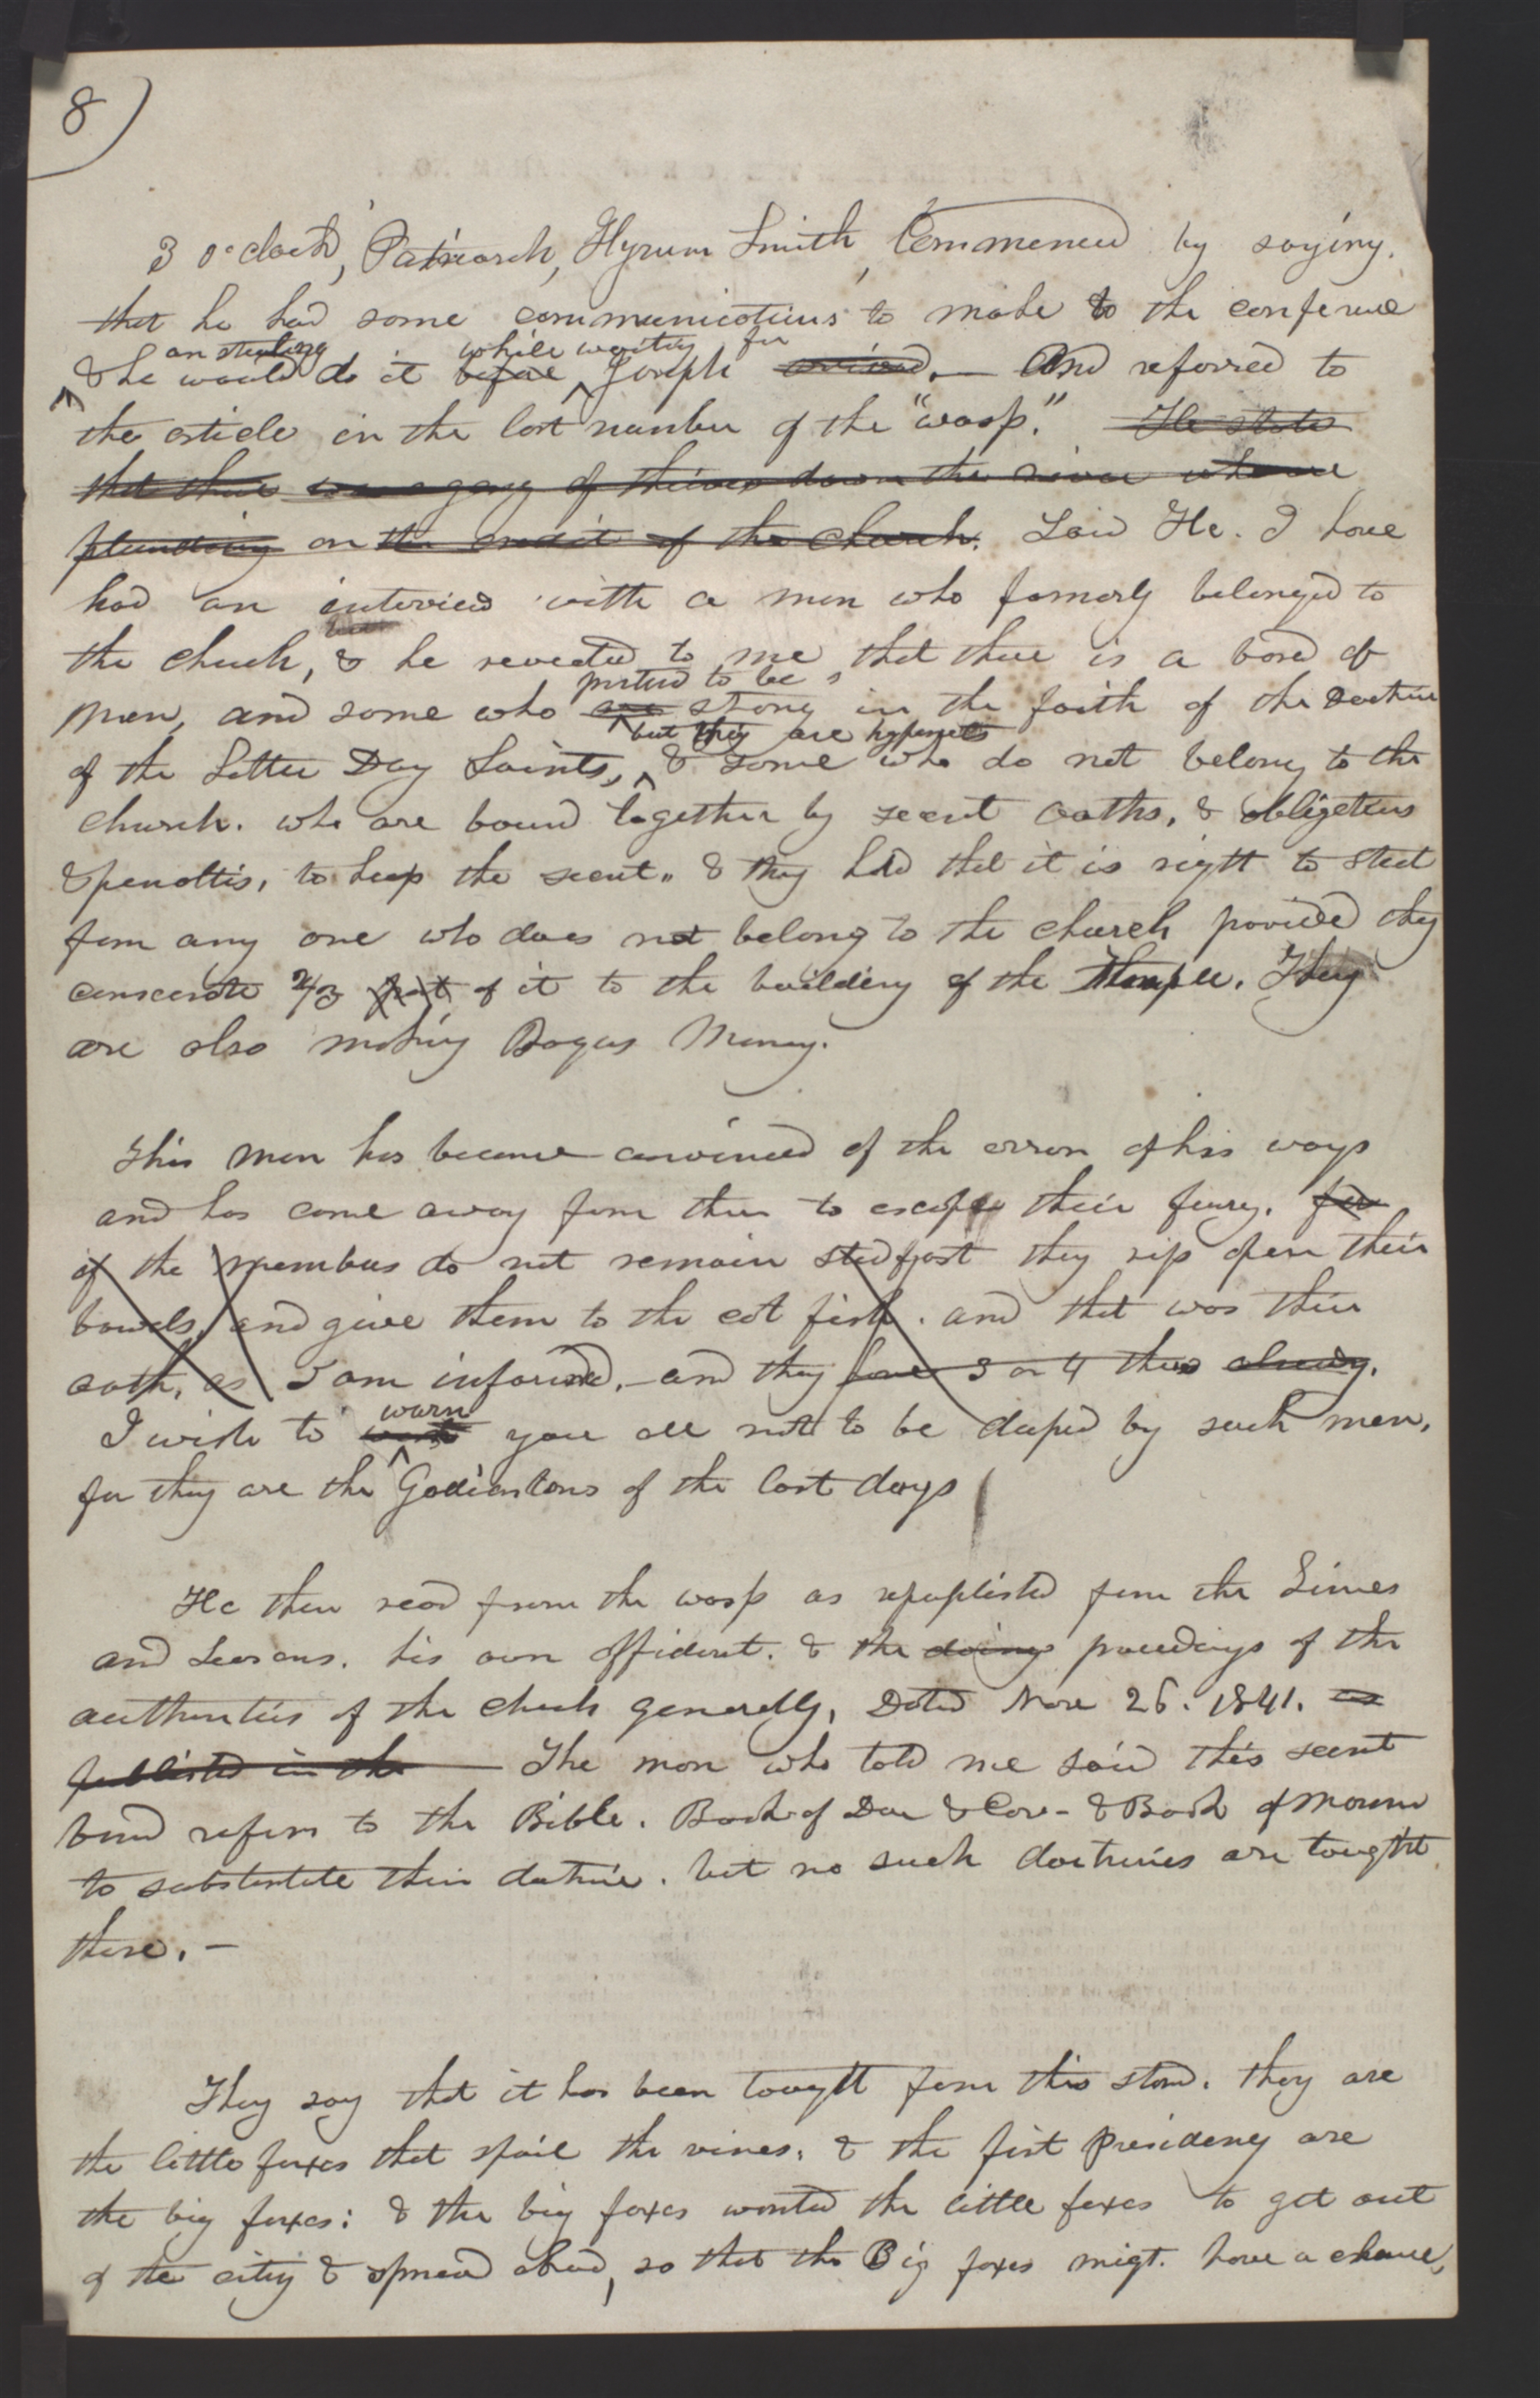 8)
3 o'clock, Patriarch, Hyrum Smith, Commenced by saying,
that he had some communications to make to the conference
on stealing while waiting for
& he would do it before Joseph arrived.— And referred to
the article in the last number of the "wasp." He states
that there was a gang of thieves down the river who are
plundering on the credit of the church. Said He. I have
had an interview with a man who formerly belonged to
the church, & he revealed to me that there is a band of
pretend to be
men, and some who are strong in the faith of the doctrine
but they are hypocrits
of the Latter Day Saints, & some who do not belong to the
church. who are bound together by secret oaths, & obligations
& penalties, to keep the secret., & they hold that it is right to steal
from any one who does not belong to the church provided they
consecrate 2/3 part of it to the building of the Temple. They
are also making Bogus Money.
This man has become convinced of the error of his ways
and has come away from them to escape their fury. for
if the members do not remain stedfast they rip open their
bowels, and give them to the cat fish. and that was their
oath, as I am informed,— and they have 3 or 4 thus already.
warn
I wish to want you all not to be duped by such men,
for they are the Gadiantons of the last days
He then read from the wasp as republished from the Times
and Seasons. his own affidavit. & the doings proceedings of the
authorities of the church generally, Dated Nov 26. 1841. as
published in the The man who told me said this secret
band refers to the Bible. Book of Doc & Cov- & Book of Mormon
to substantiate their doctrine. but no such doctrines are taught
there.—
They say that it has been taught from this stand. they are
the little foxes that spoil the vines, & the first Presidency are
the big foxes; & the big foxes wanted the little foxes to get out
of the city & spread abroad, so that the Big foxes migt. have a chance,